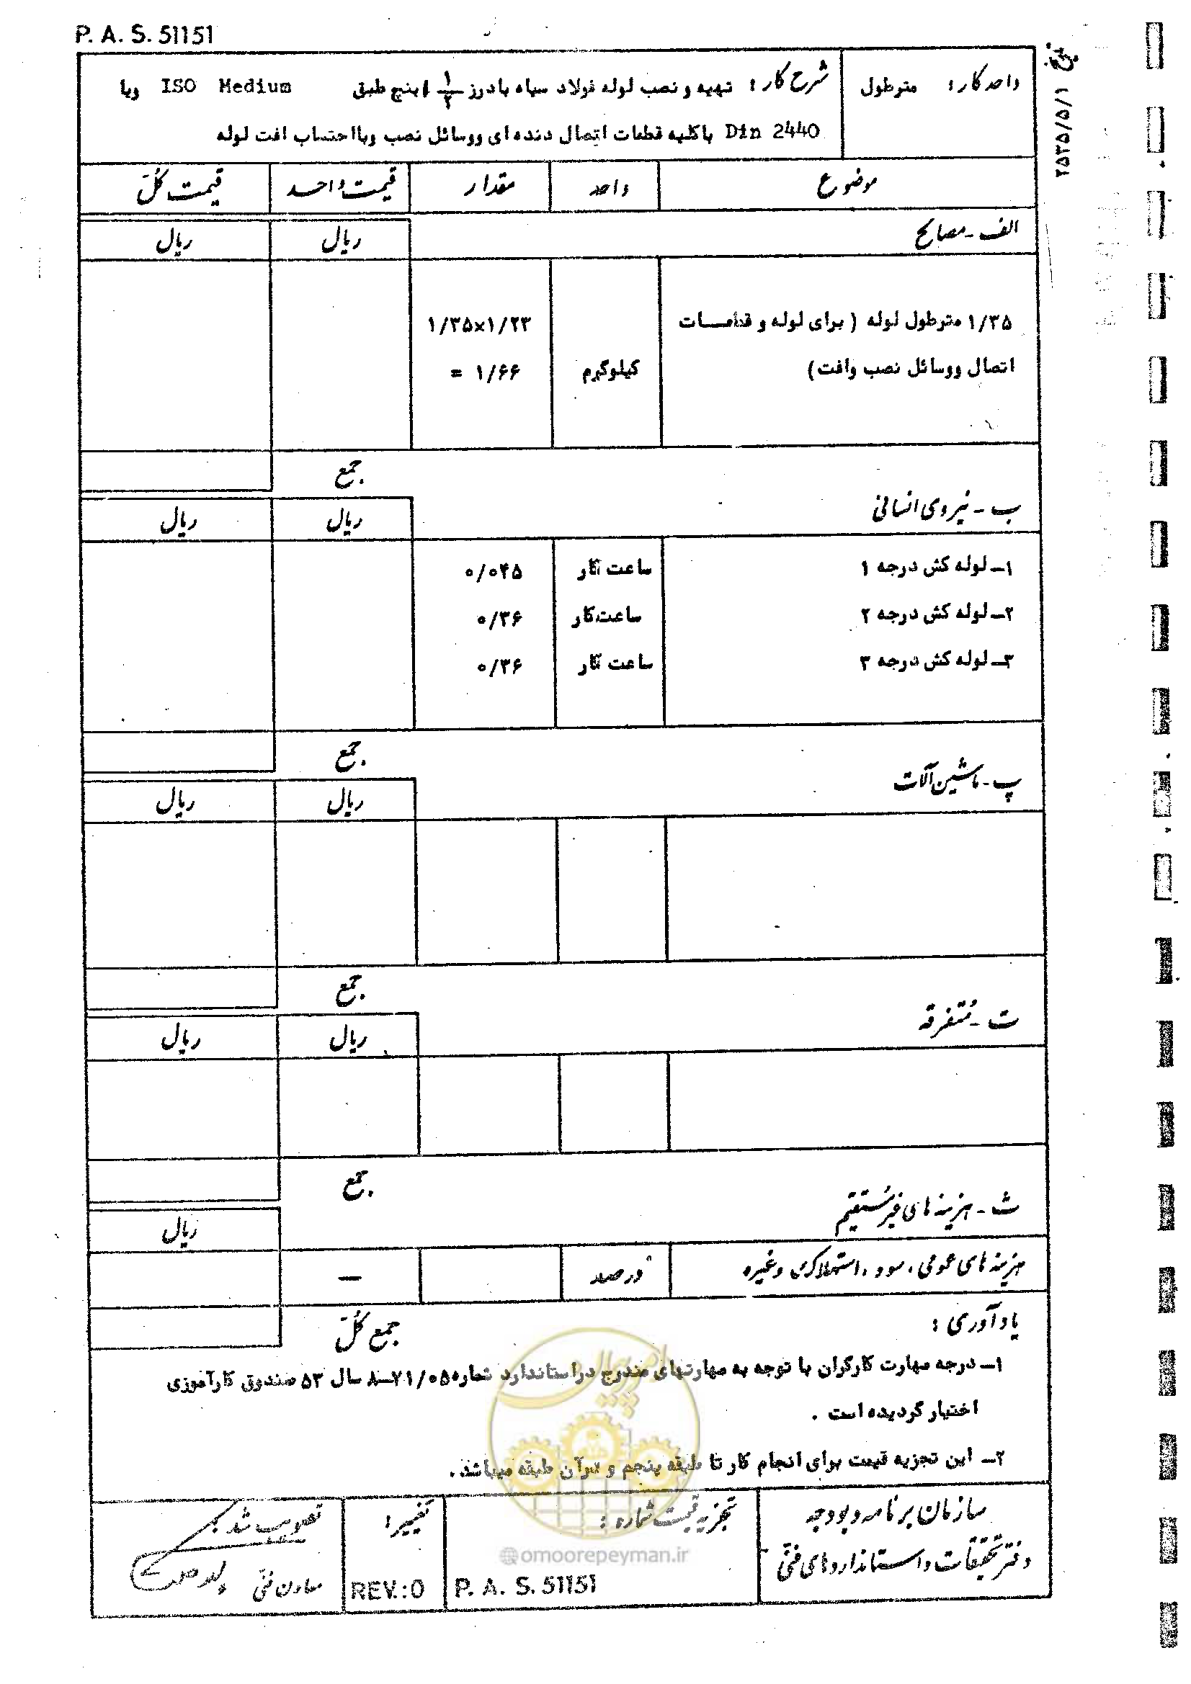 P. A. S. 51151
تاریخ ۲۵۳۵/۵/۱
واحد کار : مترطول
شرح کار : تهیه و نصب لوله فولاد سیاه بادرز ۱/۲ اینچ طبق ISO Medium ویا
Din 2440 باکلیه قطعات اتصال دنده ای ووسائل نصب وبااحتساب افت لوله
موضوع واحد مقدار قیمت واحد قیمت کل
الف - مصالح ریال ریال
۱/۳۵ مترطول لوله ( برای لوله و قطعات ۱/۳۵×۱/۲۳
اتصال ووسائل نصب وافت) کیلوگرم = ۱/۶۶
جمع
ب - نیروی انسانی ریال ریال
۱- لوله کش درجه ۱ ساعت کار ۰/۰۴۵
۲- لوله کش درجه ۲ ساعت کار ۰/۳۶
۳- لوله کش درجه ۳ ساعت کار ۰/۳۶
جمع
پ - ماشین آلات ریال ریال
جمع
ت - متفرقه ریال ریال
جمع
ث - هزینه های غیر مستقیم ریال
هزینه های عمومی ، سود ، استهلاک و غیره درصد —
جمع کل
یادآوری :
۱- درجه مهارت کارگران با توجه به مهارتهای مندرج دراستاندارد شماره ۷۱/۰۵-۸ سال ۵۳ صندوق کارآموزی
اختیار گردیده است .
۲- این تجزیه قیمت برای انجام کار تا طبقه پنجم و درآن طبقه میباشد .
سازمان برنامه و بودجه
دفتر تحقیقات و استانداردهای فنی
تجزیه قیمت شماره :
P. A. S. 51151
تغییر :
REV.:0
تصویب شد
معاون فنی
امور پیمان
@omoorepeyman.ir